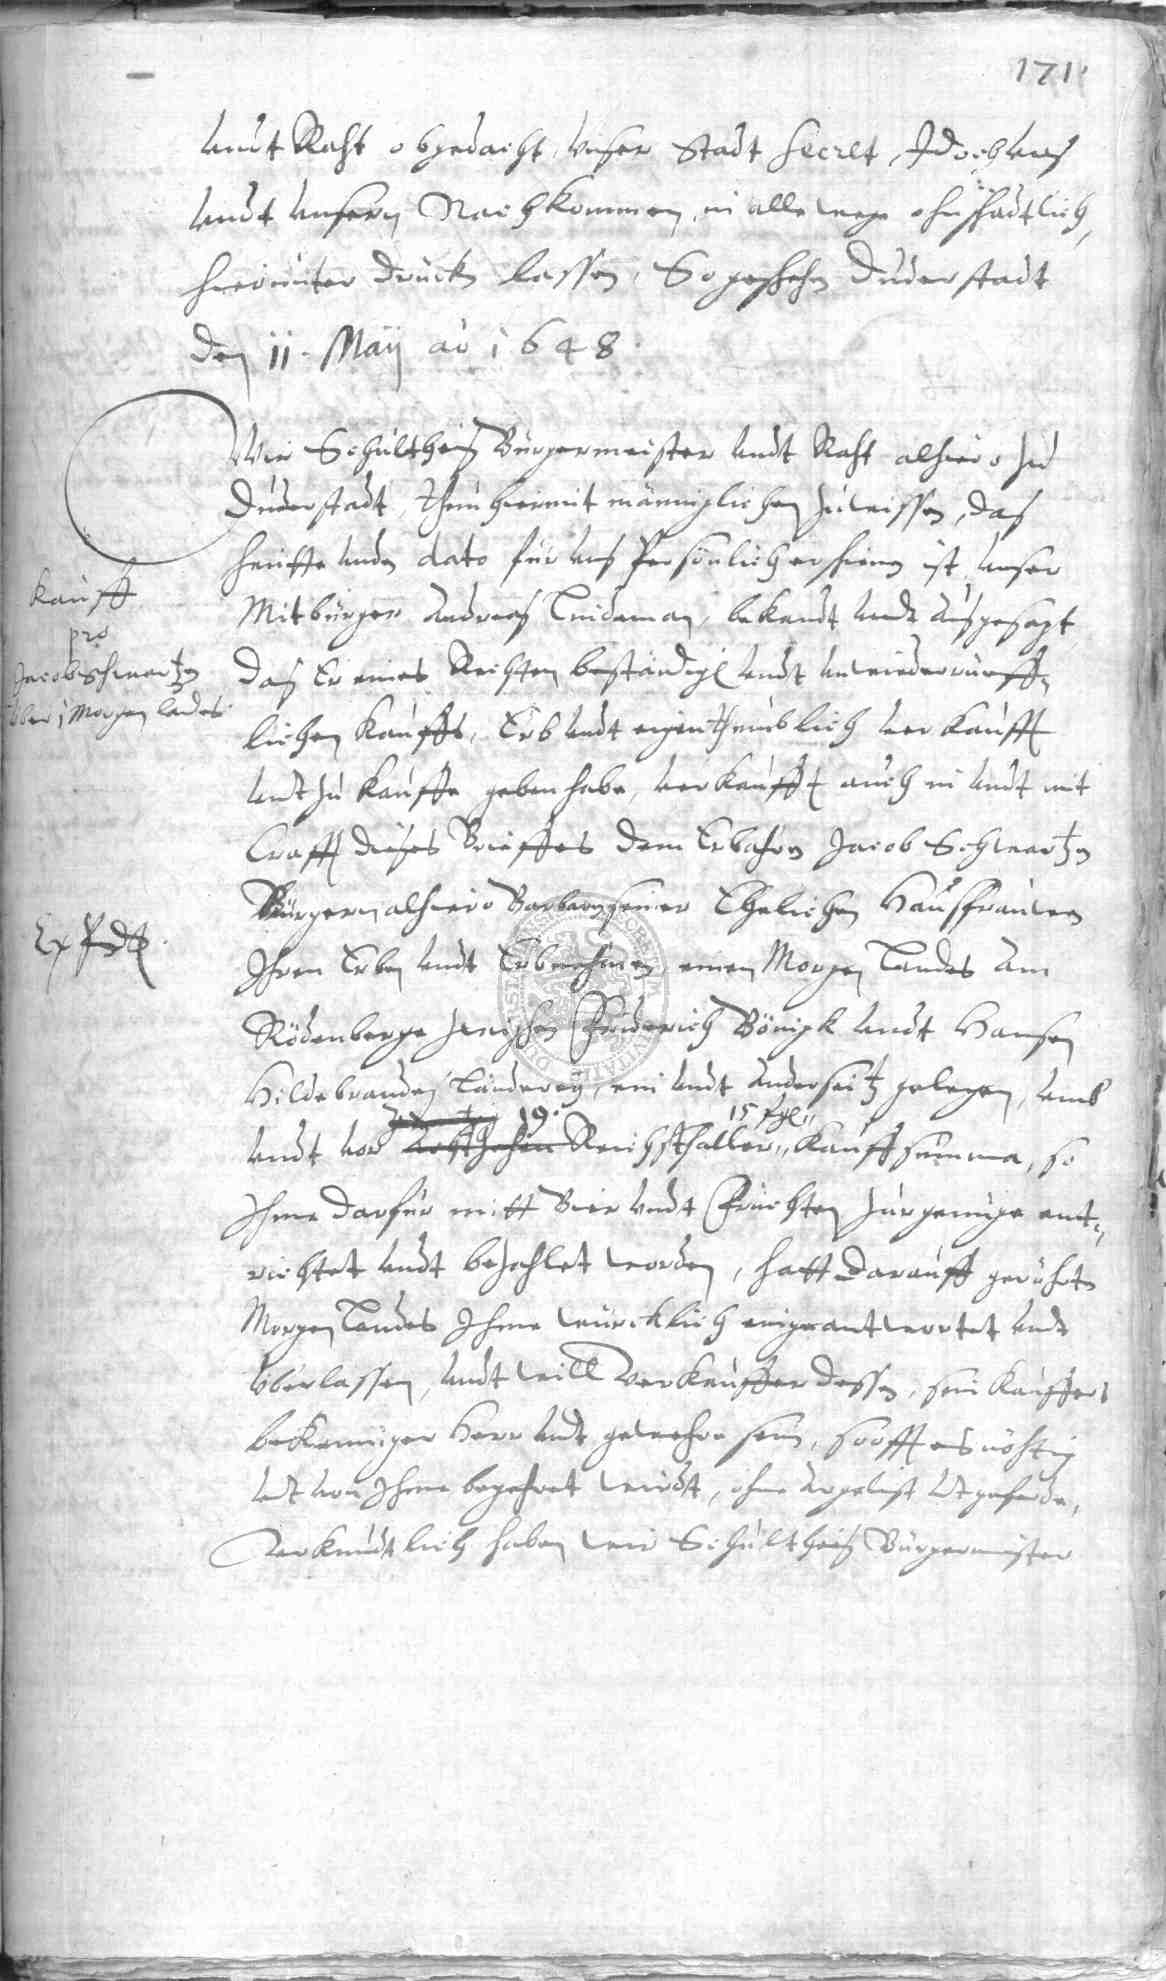 171.
undt Raht obgedacht, unser Stadt Secret, Jdoch uns
undt unsern Nachkommen, in alle wege ohnschädtlich,
hierunter drucken lassen, So geschehn Duderstadt
den 11. Maij ao 1648.
Wir Schultheiß Bürgermeister undt Raht alhiero zu
Duderstadt, thun hiermit männiglichen zu wissen, daß
heutte unden dato für uns Persönlich erschienen ist unser
Mitbürger Andreas Lindeman, bekandt undt außgesagt
daß Er eines Rechten beständigen undt unwiederrueff-
lichen Kauffs, Erb undt eigenthumblich verkaufft
undt zu kauffe geben habe, verkaufft auch in undt mit
Crafft dieses Brieffes dem Erbahren Jacob Schwartzen
Bürgern alhiero Barbaren seiner Ehelichen Haußfrauwen
Ihren Erben undt Erbnehmen, einen Morgen Landes am
Rödenberge zwischen Friderich Bönigk undt Hansen
Hildebranden Länderey, ein undt anderseitz gelegen, umb
19. 15 sgl.
undt vor Reichsthaller, Kauffsumma, so
Ihme dafür mitt Bier undt Früchten zur genuge ent-
richtet undt bezahlet worden, hatt darauff gerührten
Morgen Landes Ihme würcklich eingeantwortet undt
überlassen, undt will Verkauffer dessen, sein Kauffers
bekenniger Herr undt gewehre sein, soofft es nöhtig
undt von Ihme begehret wirdt, ohne Argelist undt gefehrde,
Uerkundtlich haben wir Schultheiß Bürgermeister
Kauff
pro
Jacob Schwartzen
über 1 Morgen Landes